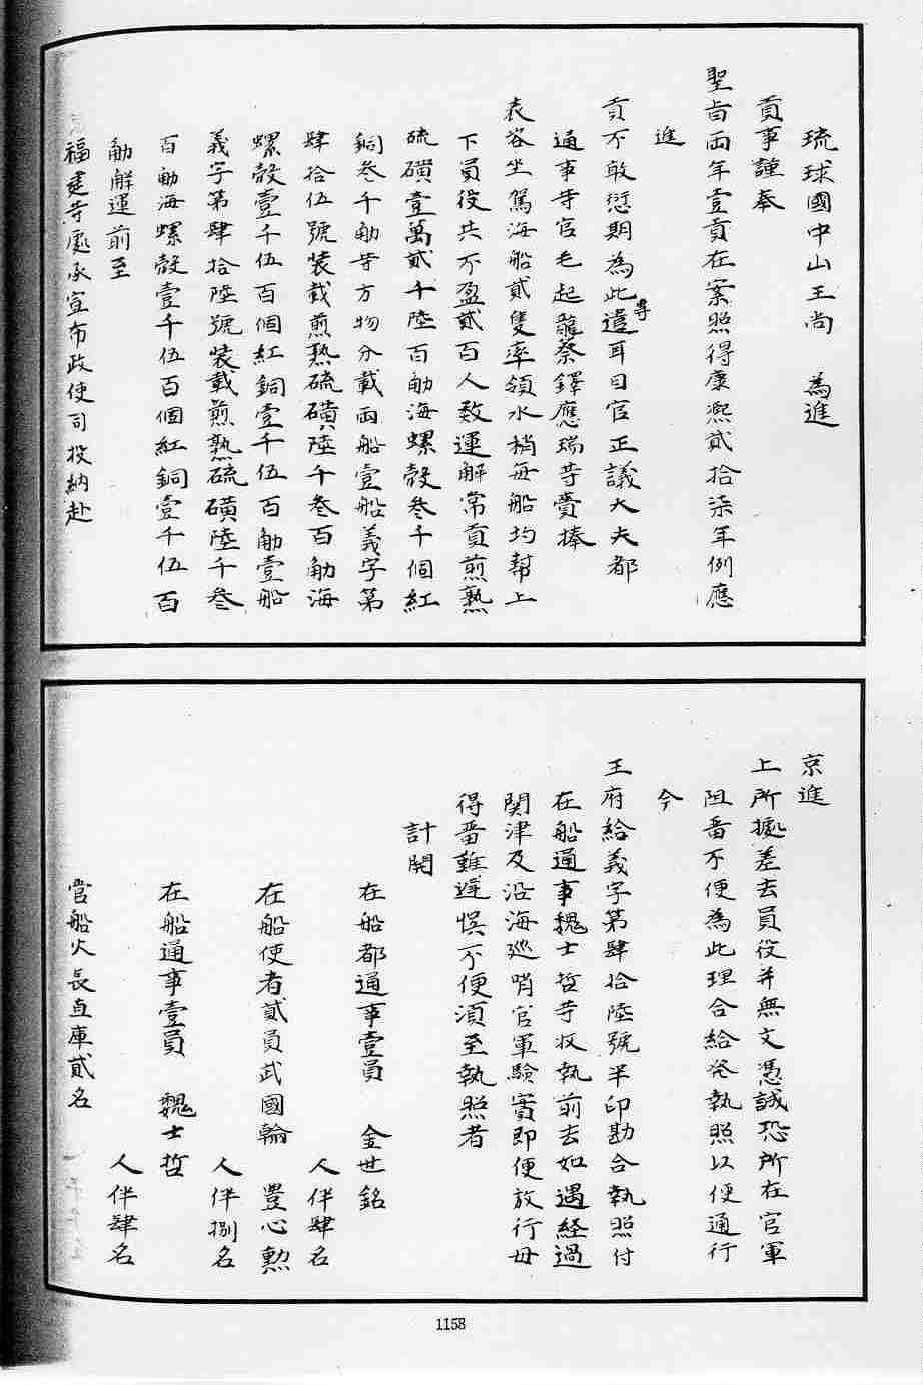 琉球國中山王尚　為進
貢事謹奉
聖旨兩年壹貢在案照得康熙貳拾柒年例應
進
貢不敢愆期為此專遣耳目官正議大夫都
通事等官毛起龍蔡鐸應瑞等賫捧
表咨坐駕海船貳隻率領水梢每船均幫上
下員役共不盈貳百人數運解常貢煎熟
硫磺壹萬貳千陸百觔海螺殼叁千個紅
銅叁千觔等方物分載兩船壹船義字第
肆拾伍號裝載煎熟硫磺陸千叁百觔海
螺殼壹千伍百個紅銅壹千伍百觔壹船
義字第肆拾陸號裝載煎熟硫磺陸千叁
百觔海螺殼壹千伍百個紅銅壹千伍百
觔解運前至
福建等處承宣布政使司投納赴
京進
上所據差去員役并無文憑誠恐所在官軍
阻畨不便為此理合給發執照以便通行
今
王府給義字第肆拾陸號半印勘合執照付
在船通事魏士哲等收執前去如遇經過
関津及沿海巡哨官軍驗實即便放行毋
得畨難遲悞不便須至執照者
計開
在船都通事壹員　金世銘
人伴肆名
在船使者貳員武國輪　豊心勲
人伴捌名
在船通事壹員　魏士哲
人伴肆名
管船火長直庫貳名
1158